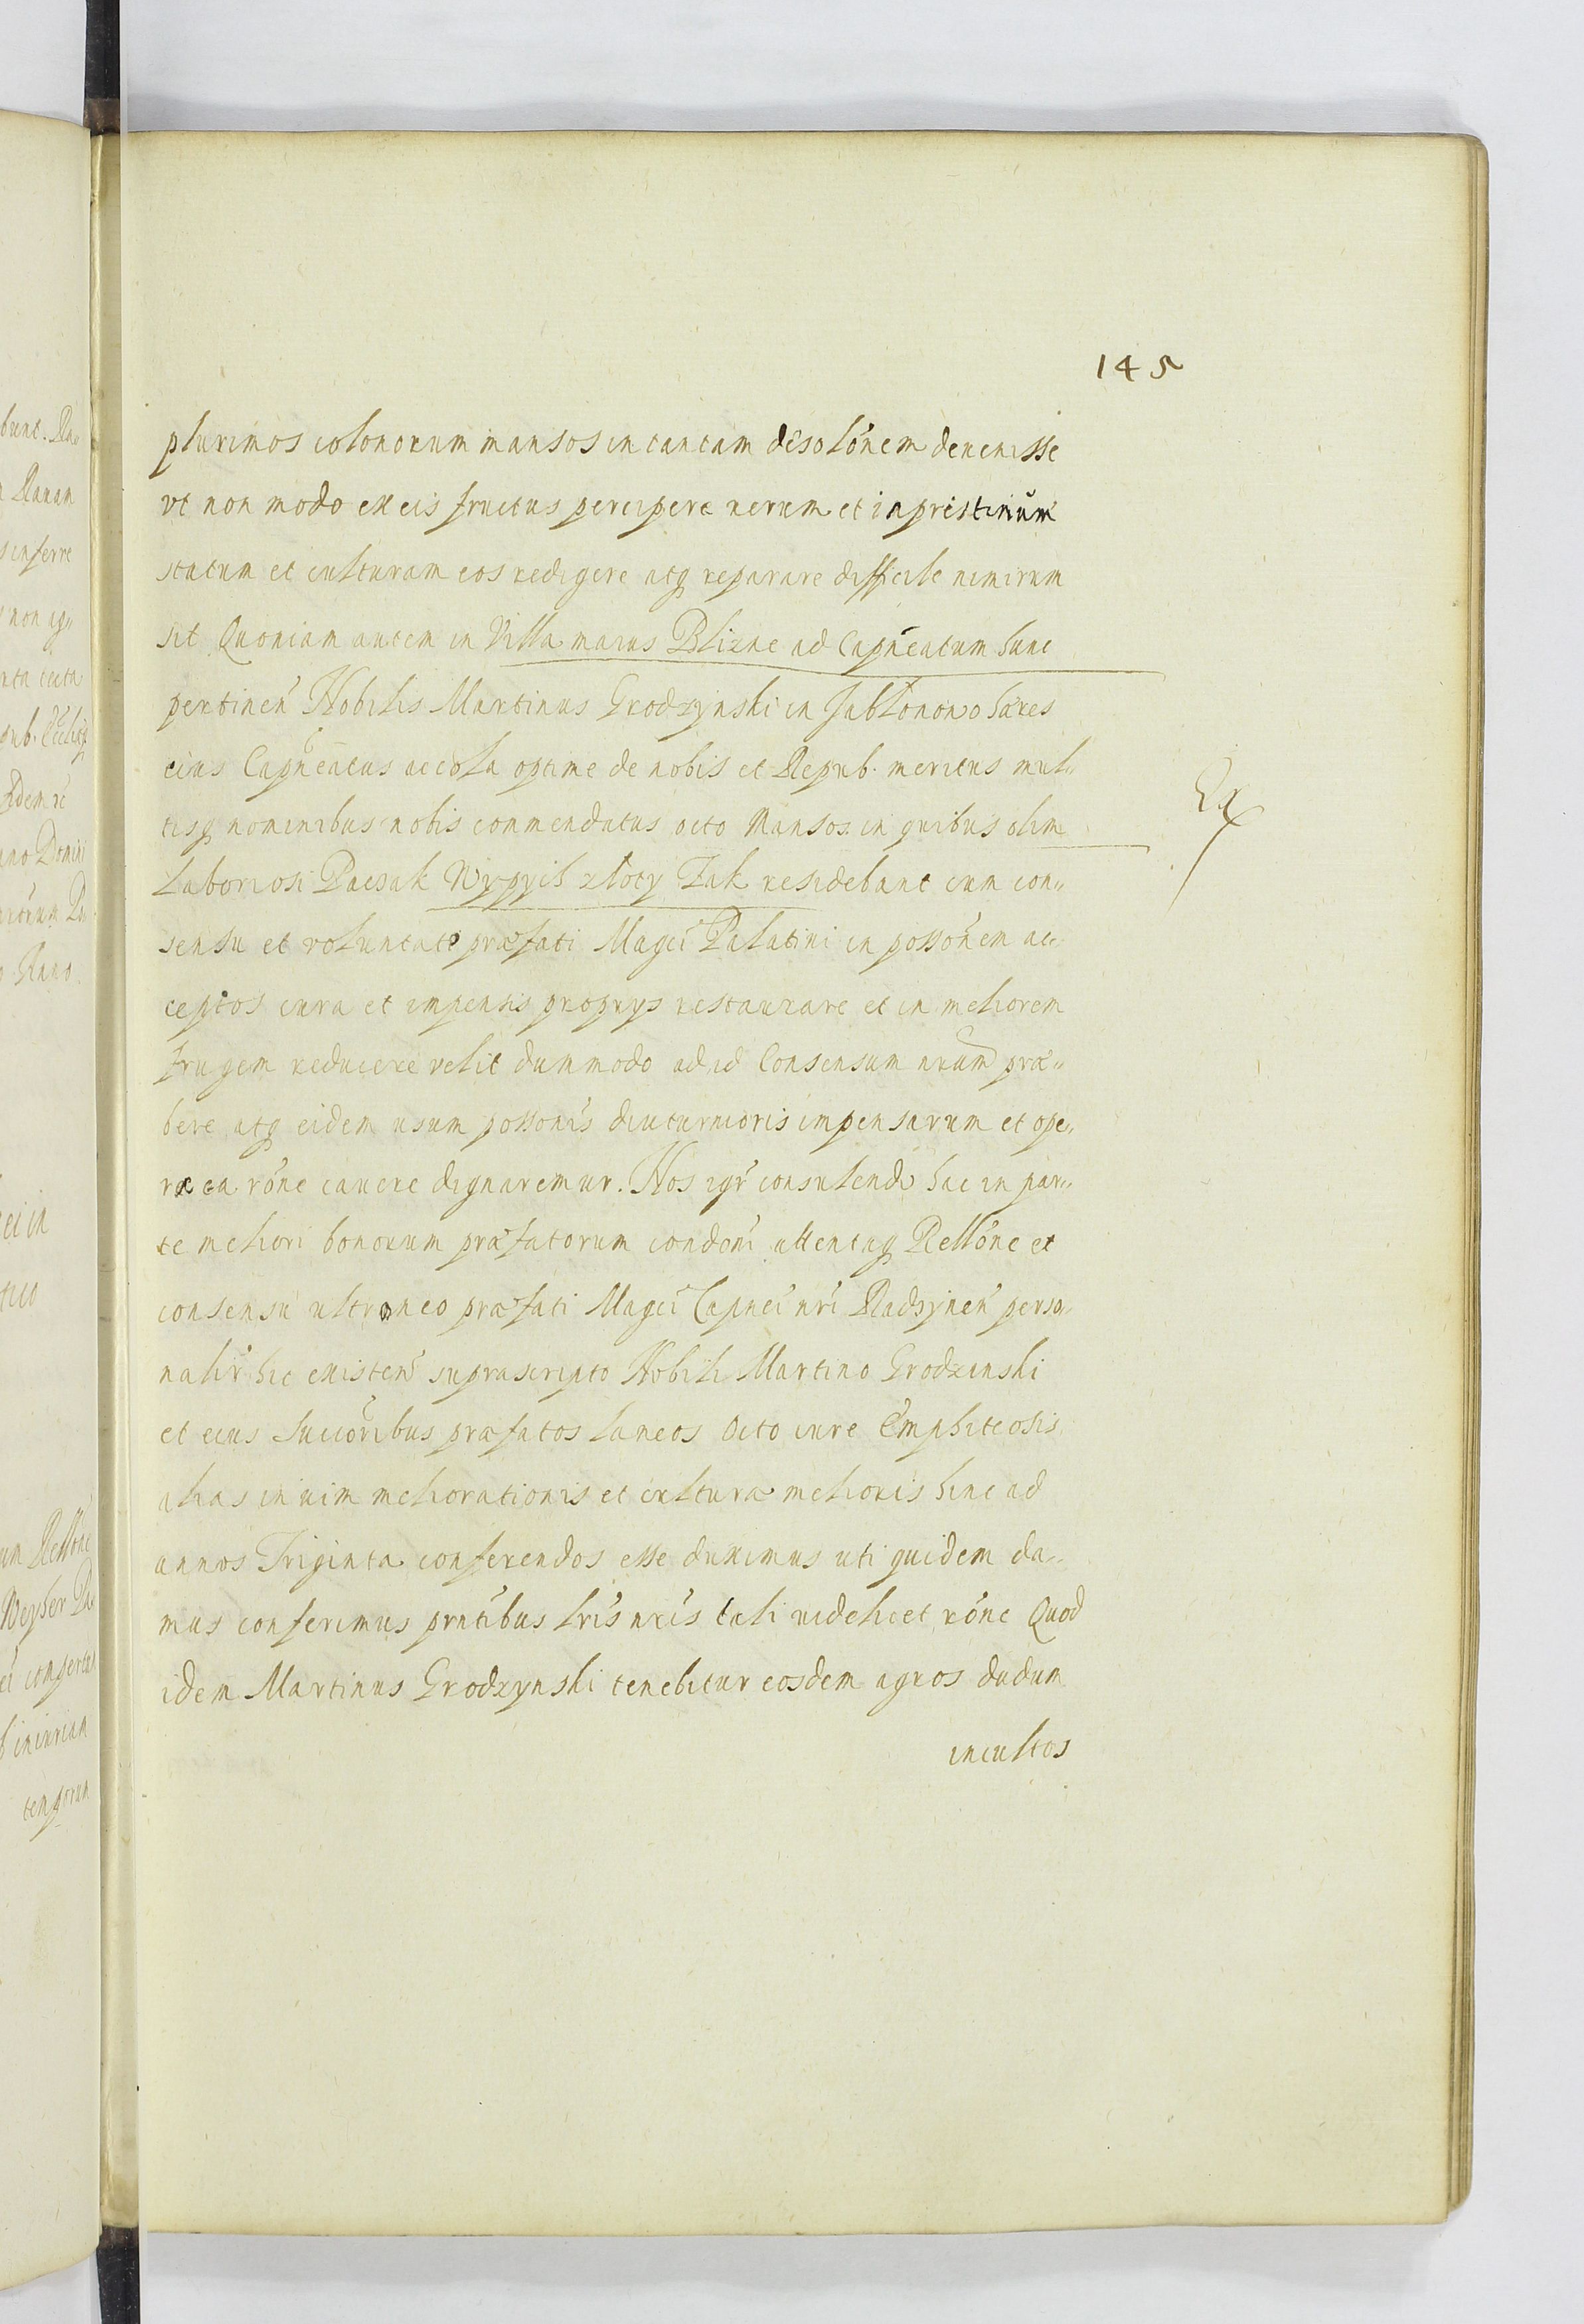 145
plurimos colonorum mansos in tantam desolonem deuenisse
vt non modo ex eis fructus percipere uerum et in pristinum
statum et culturam eos redigere atq reparare difficile nimirum
sit Quoniam autem in Villa maius Blizne ad Capneatum hunc
pertinen Nobilis Martinus Grodzynski in Jablonowo hæres
eius Capneatus accola optime de nobis et Repub. meritus mul„
tisq nominibus nobis commendatus octo Mansos in quibus olim
Laboriosi Pacsak Wypych zloty Zak residebant cum con„
sensu et voluntate præfati Magci Palatini in possonem ac„
ceptos cura et impensis proprys restaurare et in meliorem
frugem reducere velit dummodo ad id Consensum nrum præ„
bere atq eidem usum possonis diuturnioris impensarum et ope„
ræ ea rone cauere dignaremur. Nos igr consulendo hac in par„
te meliori bonorum præfatorum condoni attentaq Rellone et
consensu ultroneo præfati Magci Capnei nri Radzynen perso„
nalir hic existen suprascripto Nobili Martino Grodzinski
et eius succoribus præfatos laneos octo iure Emphiteosis
alias in uim meliorationis et cultura melioris hinc ad
annos Triginta conferendos esse duximus uti quidem da„
mus conferimus prntibus lris nris tali uidelicet rone Quod
idem Martinus Grodzynski tenebitur eosdem agros dudum
incultos